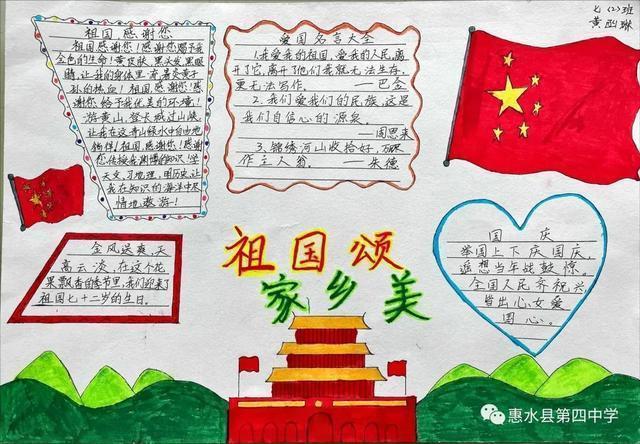 七(2)班
祖国感谢您
祖国感谢您!感谢您赐予我
金色的生命!黄皮肤,黑头发,黑眼
睛,让我的身体里流
孙的热血!祖国,感谢您!感
谢您给予我优美的环境!
游黄山,登长城过山峡,
让我在这青山绿水中自由地
徜徉!祖国,感谢您!感谢
您传授我渊博的知识!学
天文,习地理,明历史,让
我在知识的海洋中尽
情地遨游!
爱国名言大全
1.我爱我的祖国,爱我的人民,离
开了它,离开了他们,我就无法生存,
更无法写作。——巴金
2.我们爱我们的民族,这是
我们自信心的源泉。
——周恩来
3.锦绣河山收拾好,万众
作主人翁。——朱德
金风送爽,天
高云淡,在这个花
果飘香的季节里,我们迎来了
祖国七十二岁的生日。
祖国颂
家乡美
国庆
举国上下庆国庆,
遥想当年战鼓
全国人民齐祝兴,
皆出心女爱
国心。
惠水县第四中学